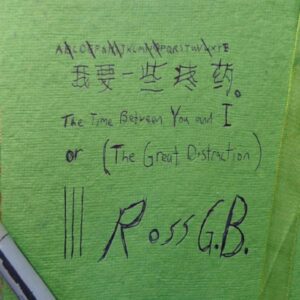 我要一些疼药。
The Time Between You and I
or (The Great Distraction)
||| Ross G.B.